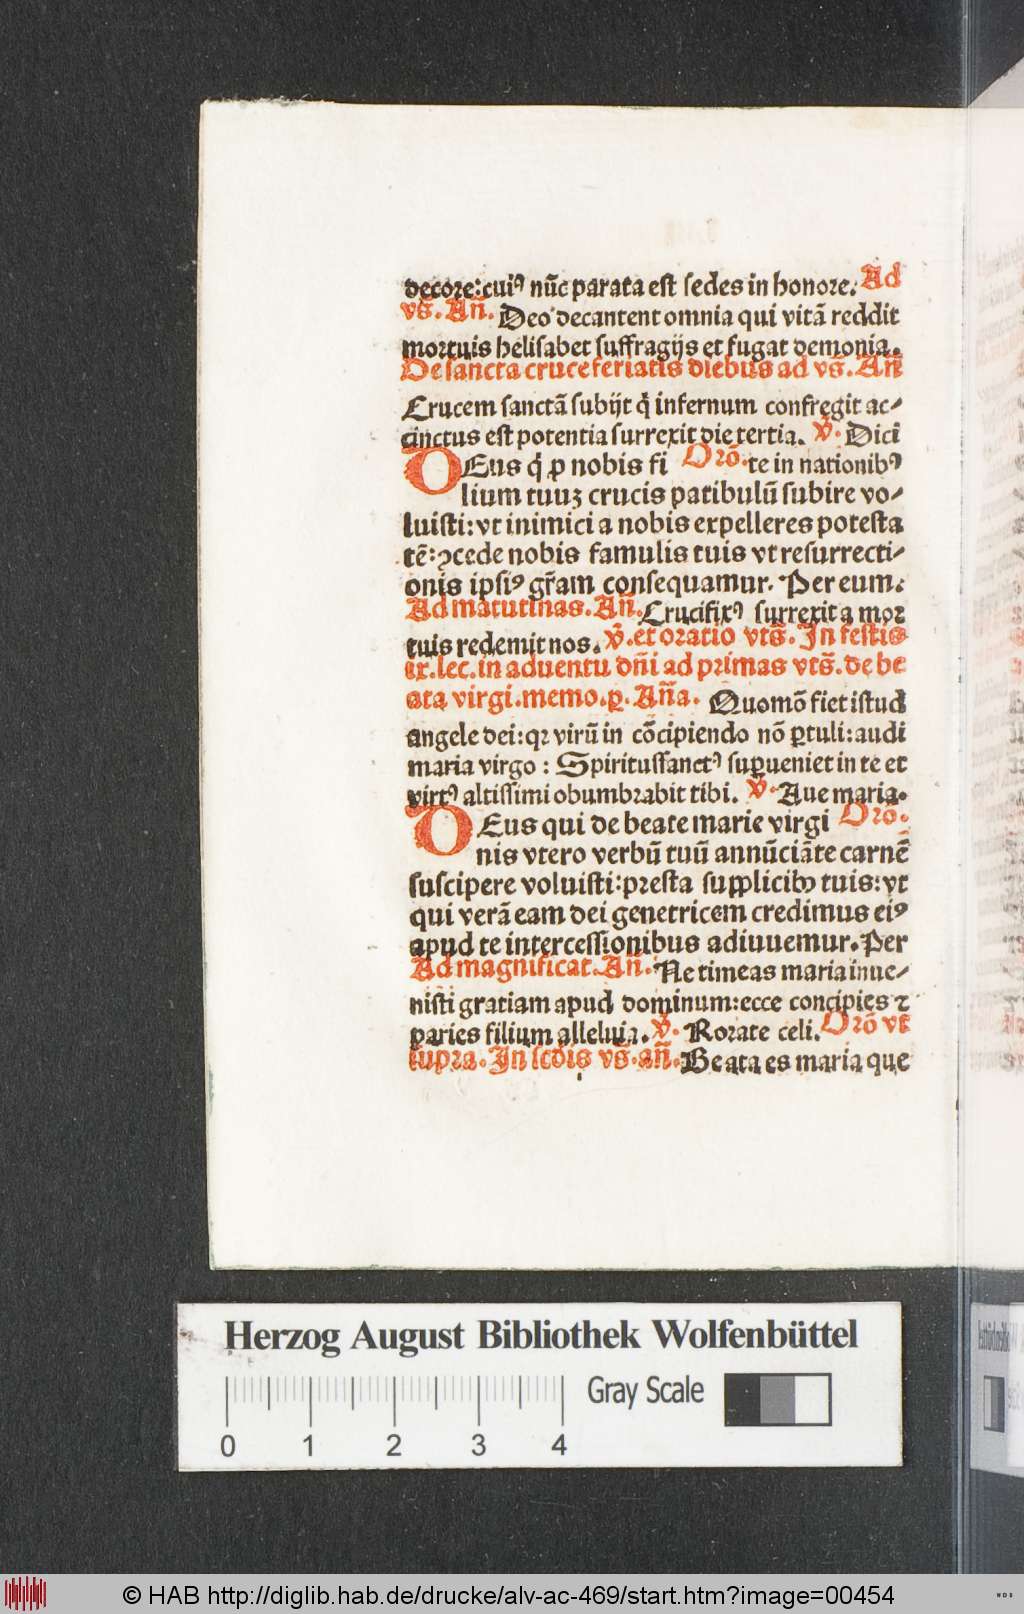 decore:cuiꝰ nūc parata est sedes in honore. Ad
vs̄. An̄. Deo decantent omnia qui vitā reddit
mortuis helisabet suffragijs et fugat demonia.
De sancta cruce feriatis diebus ad vs̄. An̄
Crucem sanctā subijt q̄ infernum confregit ac⸗
cinctus est potentia surrexit die tertia. ℣. Dici
DEus q̄ ꝓ nobis fi Orō. te in nationibꝰ
lium tuuꝫ crucis patibulū subire vo⸗
luisti: vt inimici a nobis expelleres potesta
tē: ꝯcede nobis famulis tuis vt resurrecti⸗
onis ipsiꝰ gr̄am consequamur. Per eum.
Ad matutinas. An̄. Crucifixꝰ surrexit a mor
tuis redemit nos. ℣. et oratio vts̄. In festis
ix. lec. in aduentu dn̄i ad primas vts̄. de be
ata virgi. memo. ꝑ. An̄a. Quomō fiet istud
angele dei: qꝛ virū in cōcipiendo nō ꝑtuli: audi
maria virgo : Spiritussanctꝰ supꝛueniet in te et
virtꝰ altissimi obumbrabit tibi. ℣. Aue maria.
DEus qui de beate marie virgi Orō.
nis vtero verbū tuū annūciāte carnē
suscipere voluisti: presta supplicibꝰ tuis: vt
qui verā eam dei genetricem credimus eiꝰ
apud te intercessionibus adiuuemur. Per
Ad magnificat. An̄. Ne timeas maria inue⸗
nisti gratiam apud dominum: ecce concipies ⁊
paries filium alleluia. ℣. Rorate celi. Orō vt
supra. In scd̄is vs̄. an̄. Beata es maria que
Herzog August Bibliothek Wolfenbüttel
Gray Scale
0 1 2 3 4
© HAB http://diglib.hab.de/drucke/alv-ac-469/start.htm?image=00454